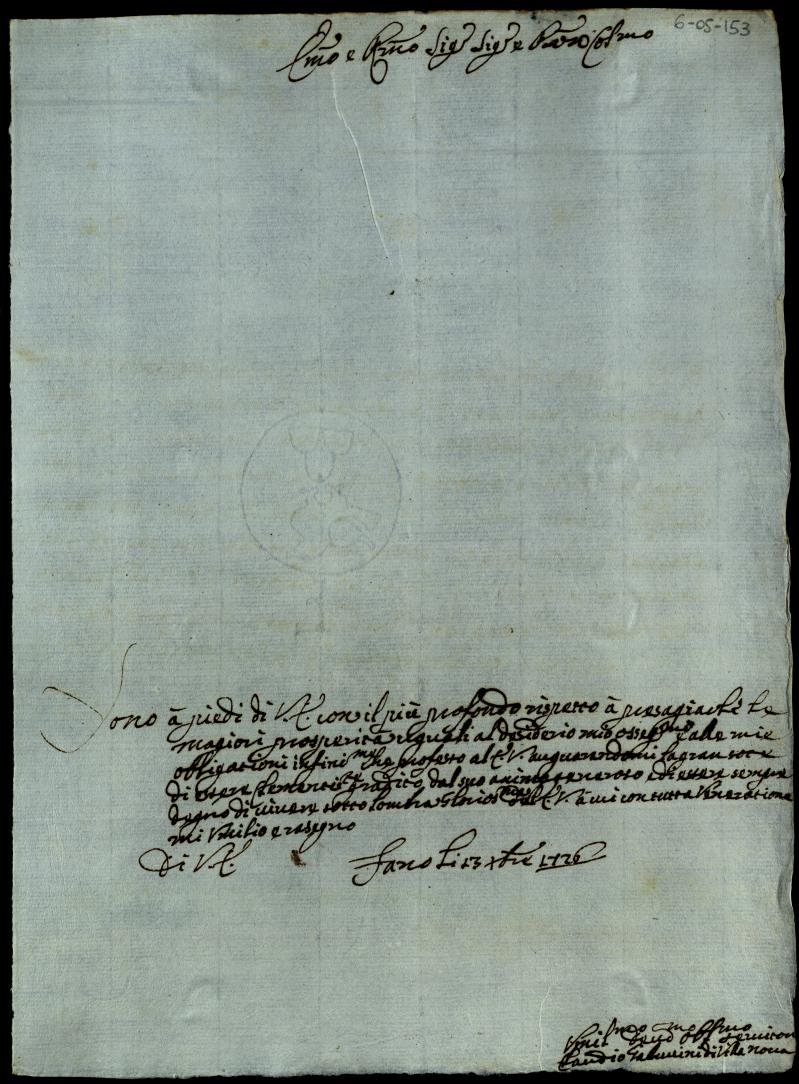 6-05-153
Emo e Rmo Sigr Sigr e Pron Colmo
Sono à piedi di V.E. con il più profondo rispetto à presagiachè le
magiori prosperità uguali al desiderio mio osseqmo e alle mie
obbligationi infinime che professo al E.V. augurandomi la gran sorte
di essere clementisте gradito dal suo animo generoso ed essere sempre
degno di vivere sotto l'ombra gloriosma del E.V. à cui con tutta Veneratione
mi Umilio e rasegno
Di V.E. Fano li 13 Xbre 1726
Umilmo Devmo Obbmo Servitore
Claudio Gabuccini di Villa Nova